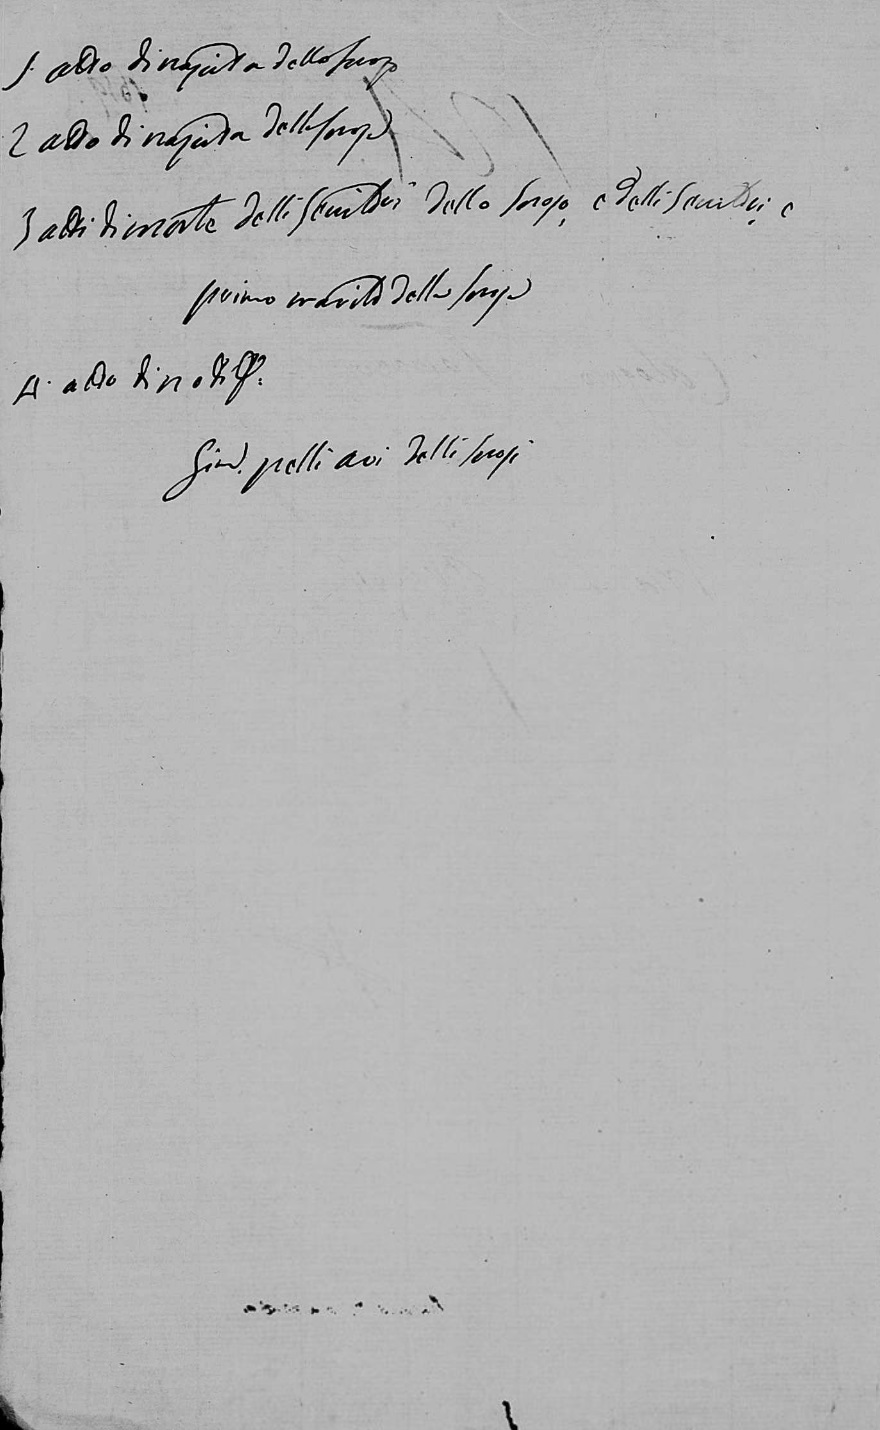 1. atto di nascita dello sposo
2 atto di nascita della sposa
3 atti di morte delli Genitori dello sposo, e delli Genitori, e
primo marito della sposa
4. atto di notif.
Giur. pelli avi delli sposi